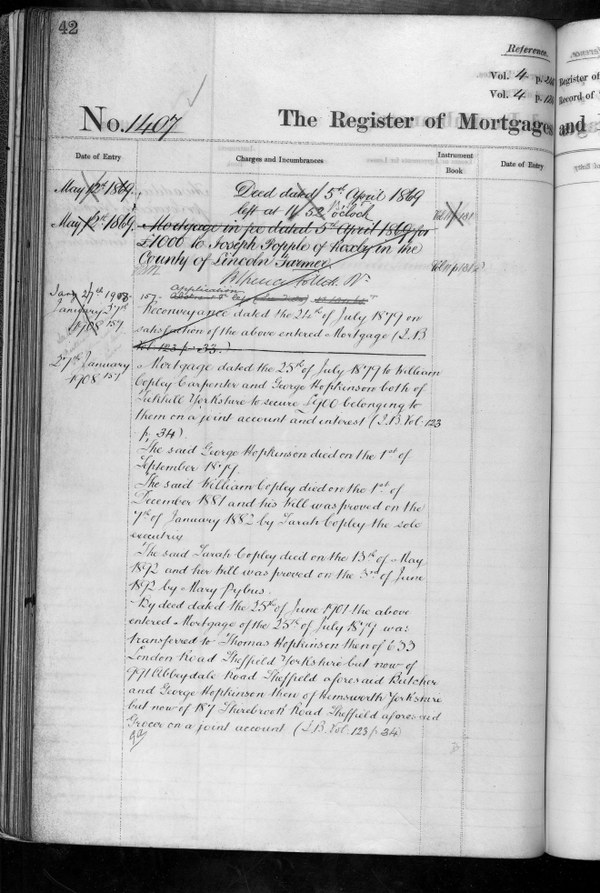 42
Reference.
Vol. 4 p.
Vol. 4 p.
Register of
Record of
No. 1407
The Register of Mortgages and
Date of Entry
Charges and Incumbrances
Instrument Book
Date of Entry
May 12th 1869.
Deed dated 5th April 1869
left at 11 52 o'clock
May 12th 1869.
Mortgage in fee dated 5th April 1869 for
£1000 to Joseph Popple of in the
County of Lincoln Farmer
Application
Jany 27th 1908
January 27th
1908 157
157.
Reconveyance dated the 24th of July 1879 on
satisfaction of the above entered Mortgage (I.B
Vol. 123 p. 33.)
27th January
1908 157
Mortgage dated the 25th of July 1879 to William
Copley Carpenter and George Hopkinson both of
Tickhill Yorkshire to secure £900 belonging to
them on a joint account and interest (I.B. Vol. 123
p. 34)
The said George Hopkinson died on the 1st of
September 1879.
The said William Copley died on the 1st of
December 1881 and his will was proved on the
7th of January 1882 by Sarah Copley the sole
executrix
The said Sarah Copley died on the 13th of May
1892 and her will was proved on the 3rd of June
1892 by Mary Pybus.
By deed dated the 25th of June 1901 the above
entered Mortgage of the 25th of July 1879 was
transferred to Thomas Hopkinson then of 633
London Road Sheffield Yorkshire but now of
991 Abbeydale Road Sheffield aforesaid Butcher
and George Hopkinson then of Hemsworth Yorkshire
but now of 187 Shorebrook Road Sheffield aforesaid
Grocer on a joint account. (I.B. Vol. 123 p. 34)